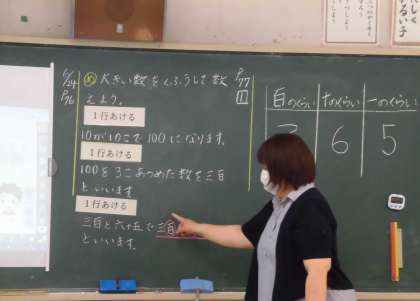 6/24
P76
め 大きい数をくふうして数
えよう。
1行あける
10が10こで100になります。
1行あける
100を3こあつめた数を三百
といいます。
1行あける
三百と六十五で三百
といいます。
P77
1
百のくらい 十のくらい 一のくらい
3 6 5